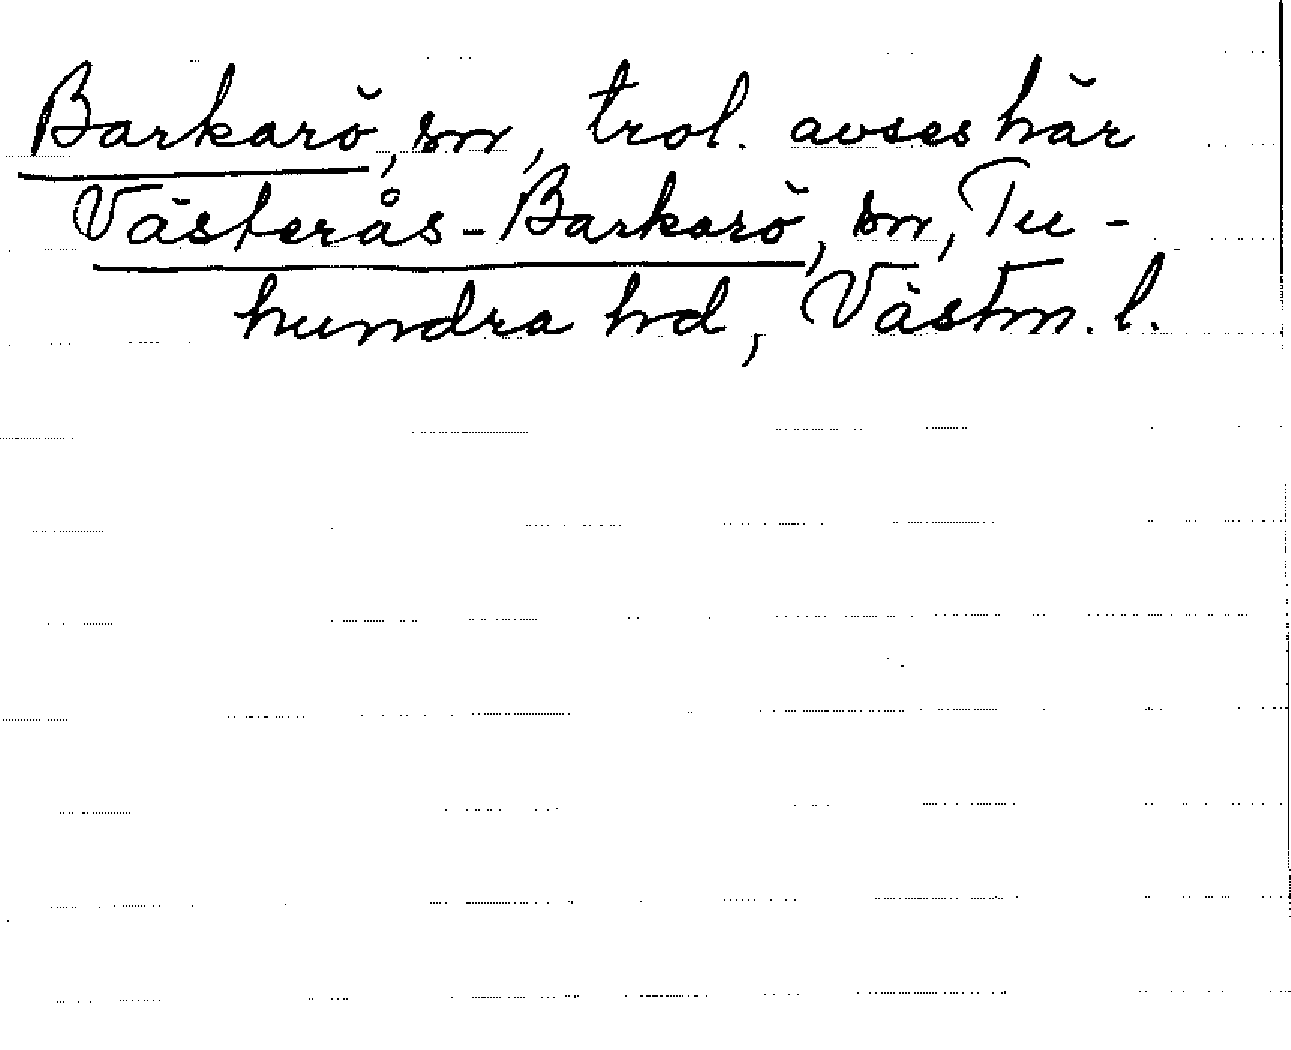 Barkarö, sn, trol. avses här
Västerås-Barkarö, sn, Tu-
hundra hd, Västm. l.